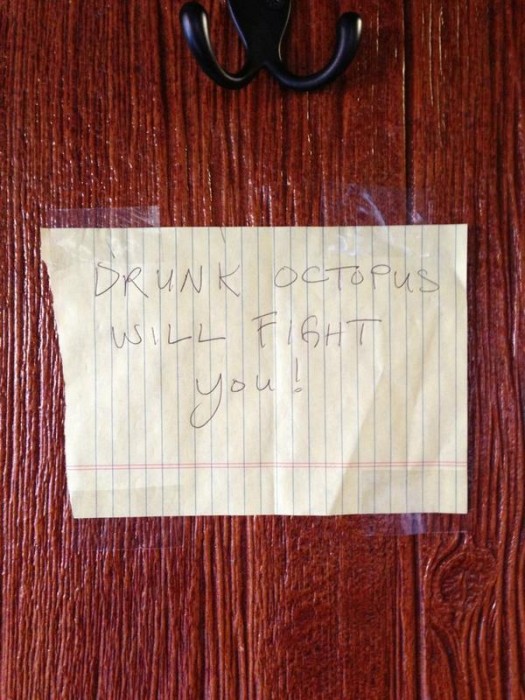 DRUNK OCTOPUS
WILL FIGHT
you!